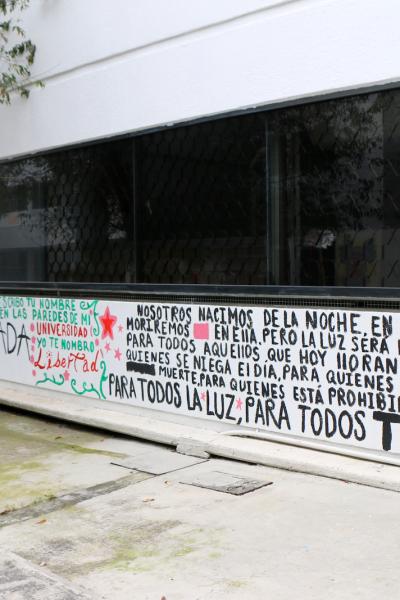 ESCRIBO TU NOMBRE
EN LAS PAREDES DE MI
UNIVERSIDAD
YO TE NOMBRO
Libertad
ADA
NOSOTROS NACIMOS DE LA NOCHE. EN
MORIREMOS EN EllA. PERO LA LUZ SERÁ
PARA TODOS AQUEllOS QUE HOY llORAN
QUIENES SE NIEGA El DÍA, PARA QUIENES
MUERTE, PARA QUIENES ESTÁ PROHIBI
PARA TODOS LA LUZ, PARA TODOS T